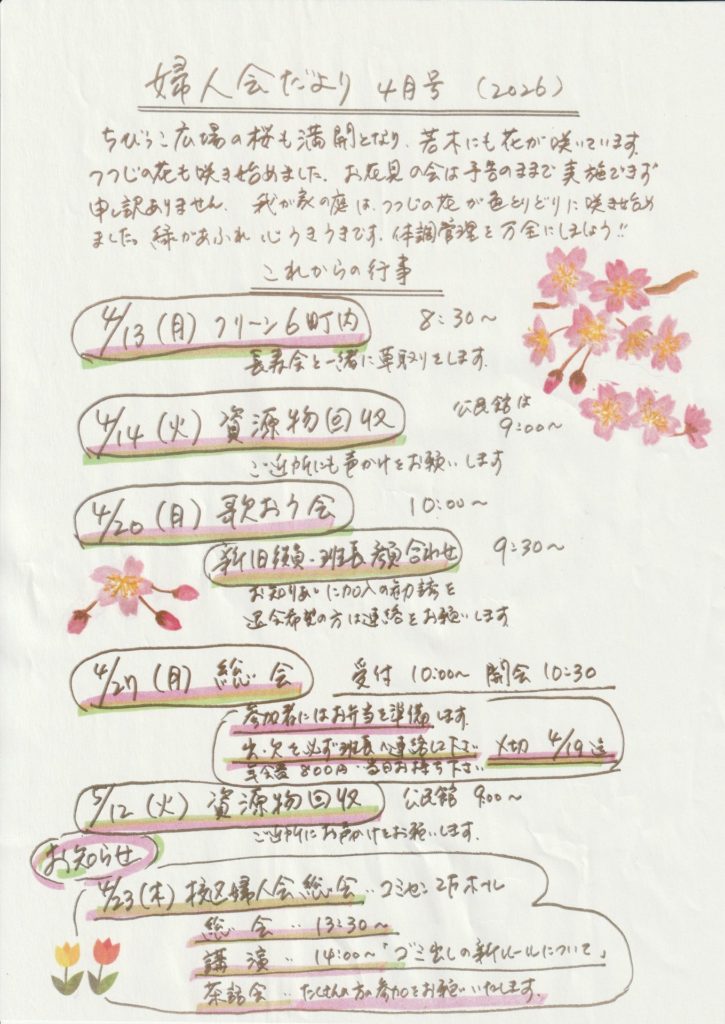 婦人会だより 4月号 (2026)
ちびっこ広場の桜も満開となり、若木にも花が咲いています。
つつじの花も咲き始めました。お花見の会は予告のままで実施できず
申し訳ありません。我が家の庭は、つつじの花が色とりどりに咲き始め
ました。緑があふれ心うきうきです。体調管理を万全にしましょう!!
これからの行事
4/13(月) クリーン6町内 8:30〜
長寿会と一緒に草取りをします。
4/14(火) 資源物回収 公民館は
9:00〜
ご近所にも声かけをお願いします
4/20(月) 歌おう会 10:00〜
新旧 班長顔合わせ 9:30〜
お知りあいに加入の勧誘を
退会希望の方は連絡をお願いします
4/27(月) 総会 受付 10:00〜 開会 10:30
参加者にはお弁当を準備します。
出・欠を必ず班長へ連絡して下さい 〆切 4/19迄
年会費800円・当日お持ち下さい
5/12(火) 資源物回収 公民館 9:00〜
ご近所にお声かけをお願いします。
お知らせ
4/23(木) 校区婦人会総会‥コミセン 2Fホール
総会‥13:30〜
講演‥14:00〜「ゴミ出しの新ルールについて」
茶話会‥たくさんの方の参加をお願いいたします。